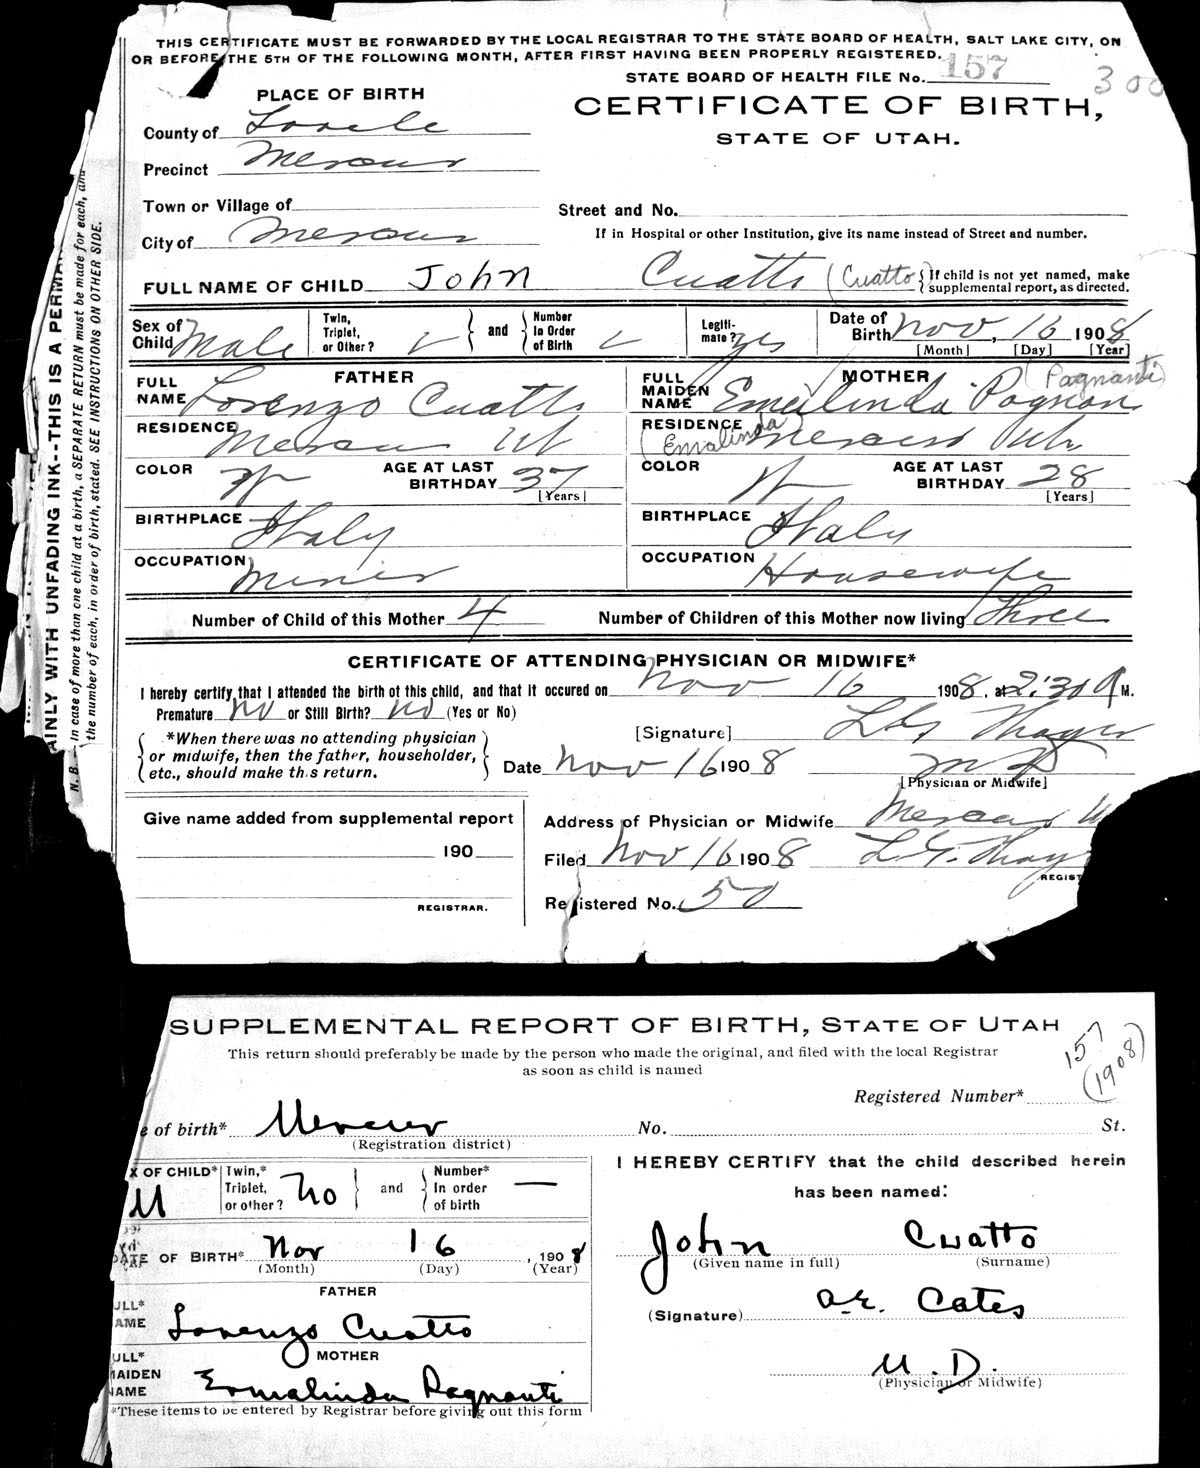 THIS CERTIFICATE MUST BE FORWARDED BY THE LOCAL REGISTRAR TO THE STATE BOARD OF HEALTH, SALT LAKE CITY, ON
OR BEFORE THE 5TH OF THE FOLLOWING MONTH, AFTER FIRST HAVING BEEN PROPERLY REGISTERED.
STATE BOARD OF HEALTH FILE No. 157
300
PLACE OF BIRTH
CERTIFICATE OF BIRTH,
STATE OF UTAH.
County of
Precinct Mercur
Town or Village of
Street and No.
City of Mercur
If in Hospital or other Institution, give its name instead of Street and number.
FULL NAME OF CHILD John Cuatto (Cuatto) {If child is not yet named, make
supplemental report, as directed.
Sex of Child Male
Twin, Triplet, or Other?
and
Number In Order of Birth
Legiti-mate? yes
Date of Birth Nov, 16 1908
[Month] [Day] [Year]
FATHER
FULL NAME Lorenzo Cuatto
RESIDENCE Mercur Ut
COLOR W
AGE AT LAST BIRTHDAY 37
[Years]
BIRTHPLACE Italy
OCCUPATION Miner
MOTHER (Pagnanti)
FULL MAIDEN NAME Emerlinda Pagnan
RESIDENCE (Emalinda) Mercur Utr
COLOR W
AGE AT LAST BIRTHDAY 28
[Years]
BIRTHPLACE Italy
OCCUPATION Housewife
Number of Child of this Mother 4
Number of Children of this Mother now living Three
CERTIFICATE OF ATTENDING PHYSICIAN OR MIDWIFE*
I hereby certify that I attended the birth of this child, and that it occured on Nov 16 1908, at 2:30 A M.
Premature No or Still Birth? No (Yes or No)
*When there was no attending physician
or midwife, then the father, householder,
etc., should make this return.
[Signature] Thayer
Date Nov 16 1908 MD
[Physician or Midwife]
Give name added from supplemental report
190
REGISTRAR.
Address of Physician or Midwife Mercur U
Filed Nov 16 1908 L. G. Thay
REGIST
Registered No. 50
AINLY WITH UNFADING INK--THIS IS A PERMA
N. B.--In case of more than one child at a birth, a SEPARATE RETURN must be made for each, and
the number of each, in order of birth, stated. SEE INSTRUCTIONS ON OTHER SIDE.
SUPPLEMENTAL REPORT OF BIRTH, STATE OF UTAH
This return should preferably be made by the person who made the original, and filed with the local Registrar
as soon as child is named
157
(1908)
Registered Number*
e of birth* Mercur
(Registration district)
No. St.
X OF CHILD* M
Twin,* Triplet, or other? No
and
Number* In order of birth —
DATE OF BIRTH* Nov 16, 1908
(Month) (Day) (Year)
FATHER
ULL* AME Lorenzo Cuatto
MOTHER
ULL* MAIDEN NAME Ermalinda Pagnanti
*These items to be entered by Registrar before giving out this form
I HEREBY CERTIFY that the child described herein
has been named:
John Cuatto
(Given name in full) (Surname)
(Signature) a.E. Cates
M.D.
(Physician or Midwife)